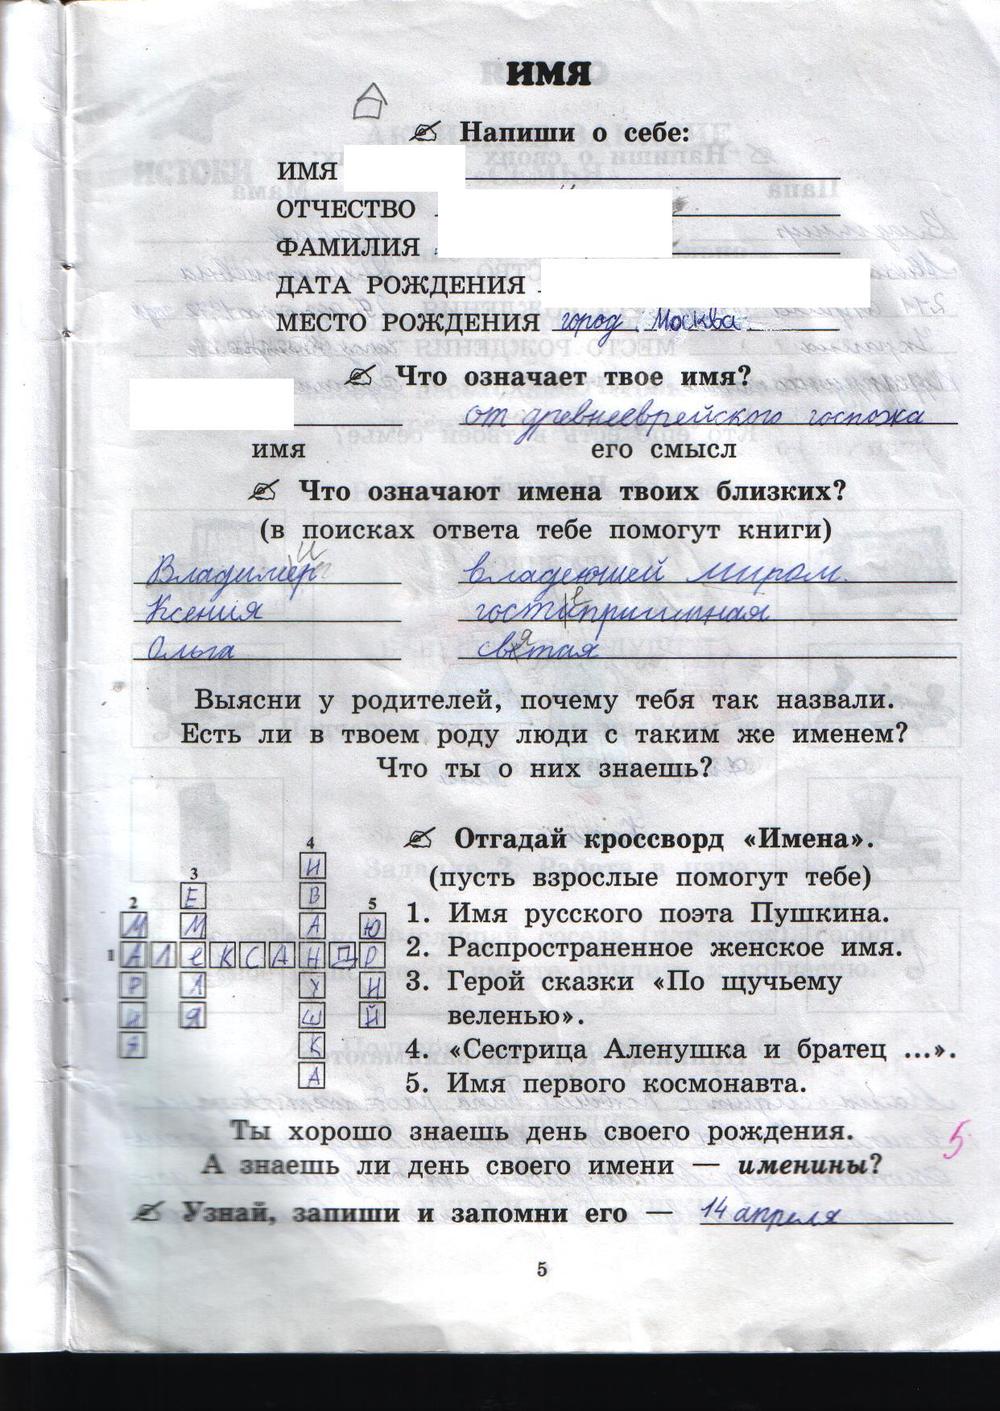 ИМЯ
Напиши о себе:
ИМЯ
ОТЧЕСТВО
ФАМИЛИЯ
ДАТА РОЖДЕНИЯ
МЕСТО РОЖДЕНИЯ город Москва
Что означает твое имя?
от древнееврейского госпожа
имя его смысл
Что означают имена твоих близких?
(в поисках ответа тебе помогут книги)
Владимир владеющей миром.
Ксения гостеприимная
Ольга святая
Выясни у родителей, почему тебя так назвали.
Есть ли в твоем роду люди с таким же именем?
Что ты о них знаешь?
Отгадай кроссворд «Имена».
(пусть взрослые помогут тебе)
1. Имя русского поэта Пушкина.
2. Распространенное женское имя.
3. Герой сказки «По щучьему
веленью».
4. «Сестрица Аленушка и братец ...».
5. Имя первого космонавта.
1 АЛеКСАНДР
2 МАРИЯ
3 ЕМеЛЯ
4 ИВАНУШКА
5 ЮРИЙ
Ты хорошо знаешь день своего рождения.
А знаешь ли день своего имени — именины?
5
Узнай, запиши и запомни его — 14 апреля
5